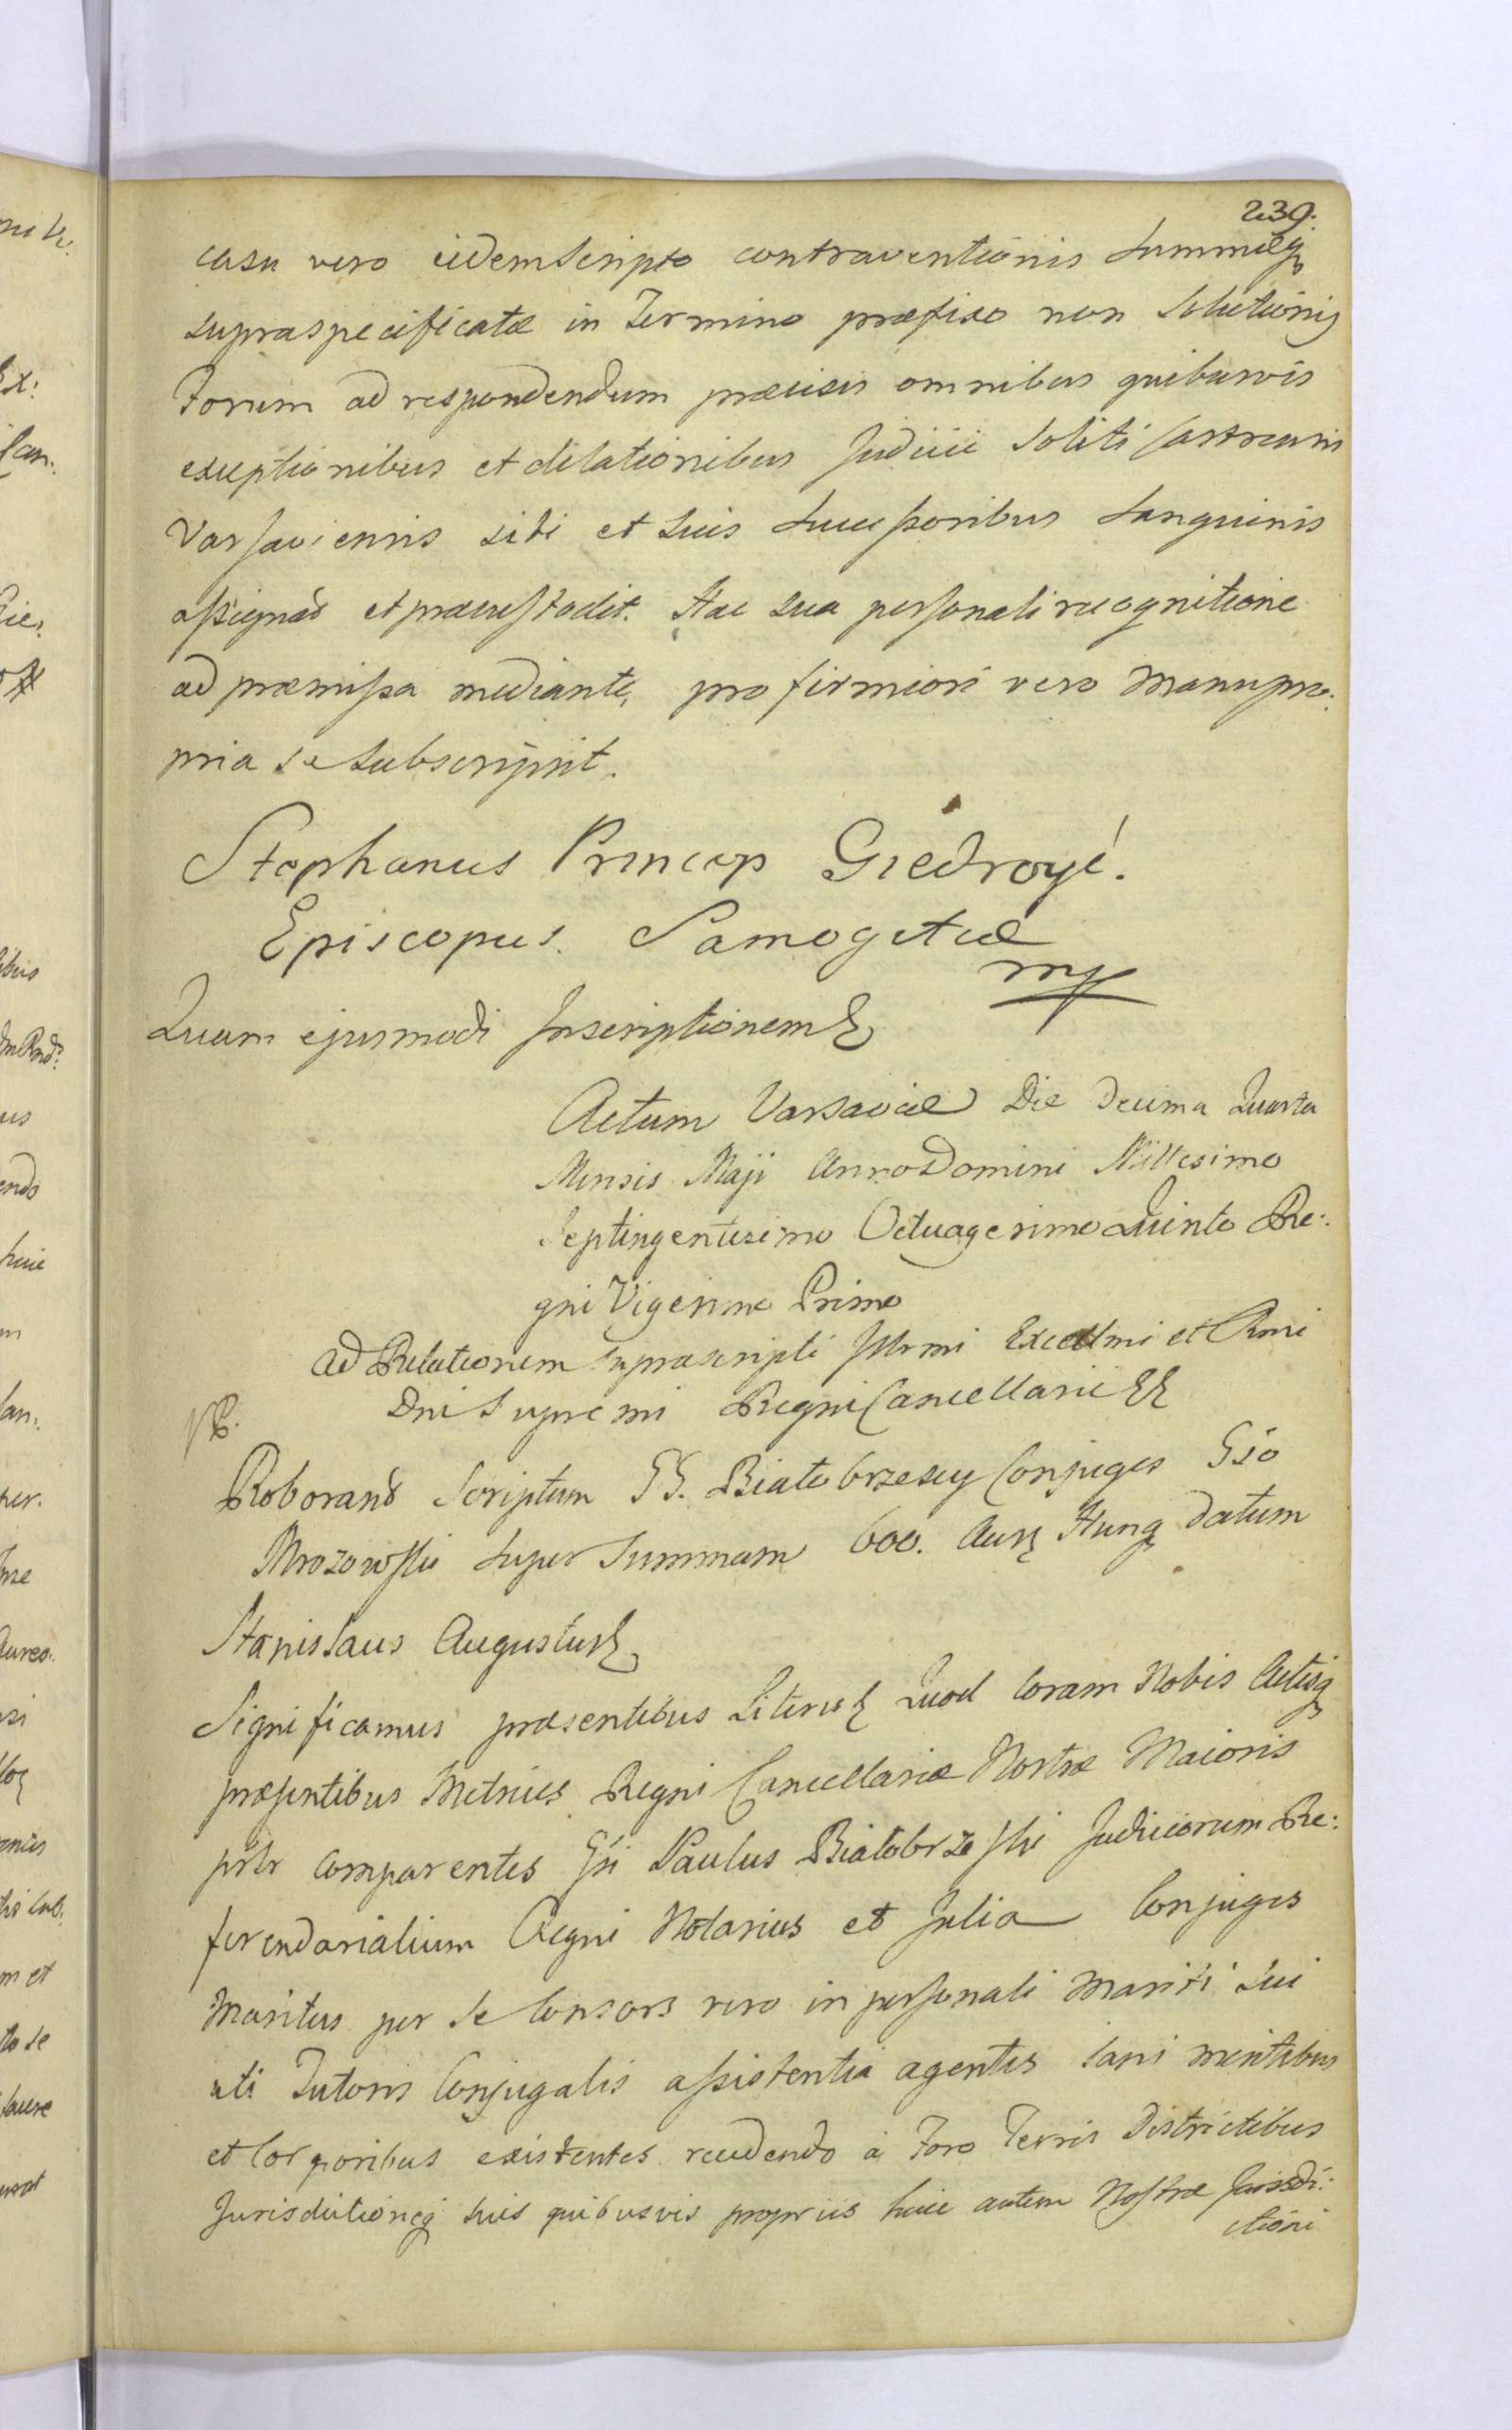 239.
casu vero eidem Scripto contraventionis Summæq3
supraspecificatæ in Termino præfixo non Solutionis
Forum ad respondendum præcisis omnibus quibusvis
exceptionibus et dilationibus Judicii Soliti Castrensis
Varsaviensis sibi et suis Successoribus Sanguinis
assignāt et præcustodit. Hac sua personali recognitione
ad præmissa mediante, pro firmiori vero Manu pro:
pria se subscripsit.
Stephanus Princeps Giedroyć.
Episcopus Samogitiæ
mp
Quam ejusmodi Inscriptionem &
Actum Varsaviæ Die Decima Quarta
Mensis Maji Anno Domini Millesimo
Septingentesimo Octuagesimo Quinto Re:
gni Vigesimo Primo
ad Relationem Suprascripti Illrmi Excellmi et Rmi
Dni Supremi Regni Cancellarii &&
Roborand Scriptum GG. Białobrzescy Conjuges Gso
Mrozowski super Summam 600. Aur Hung datum
Stanislaus Augustus &
Significamus præsentibus Literis & Quod Coram Nobis Actisq3
præsentibus Metrices Regni Cancellariæ Nostræ Maioris
prlr comparentes Gsi Paulus Białobrzeski Judiciorum Re:
ferendarialium Regni Notarius et Julia Conjuges
Maritus per se Consors vero in personali Mariti sui
uti Tutoris Conjugalis assistentia agentes sani mentibus
et Corporibus existentes recedendo à Foro Terris Districtibus
Jurisdictioneq3 suis quibusvis propriis huic autem Nostræ Jurisdi:
ctioni